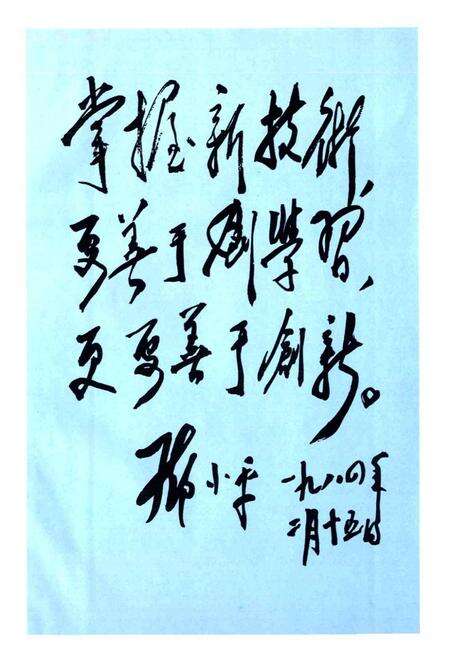 掌握新技術、
要善于學習、
更要善于創新。
邓小平
一九八四年
二月十五日